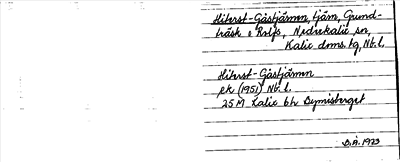 Hiterst-Gåstjärnen, tjärn, Grund-
träsk o Rolfs, Nederkalix sn,
Kalix dms. tg, Nb. l.
Hiterst-Gåstjärnen
ek (1951) Nb. l.
25 M Kalix bl.
B.Å. 1973